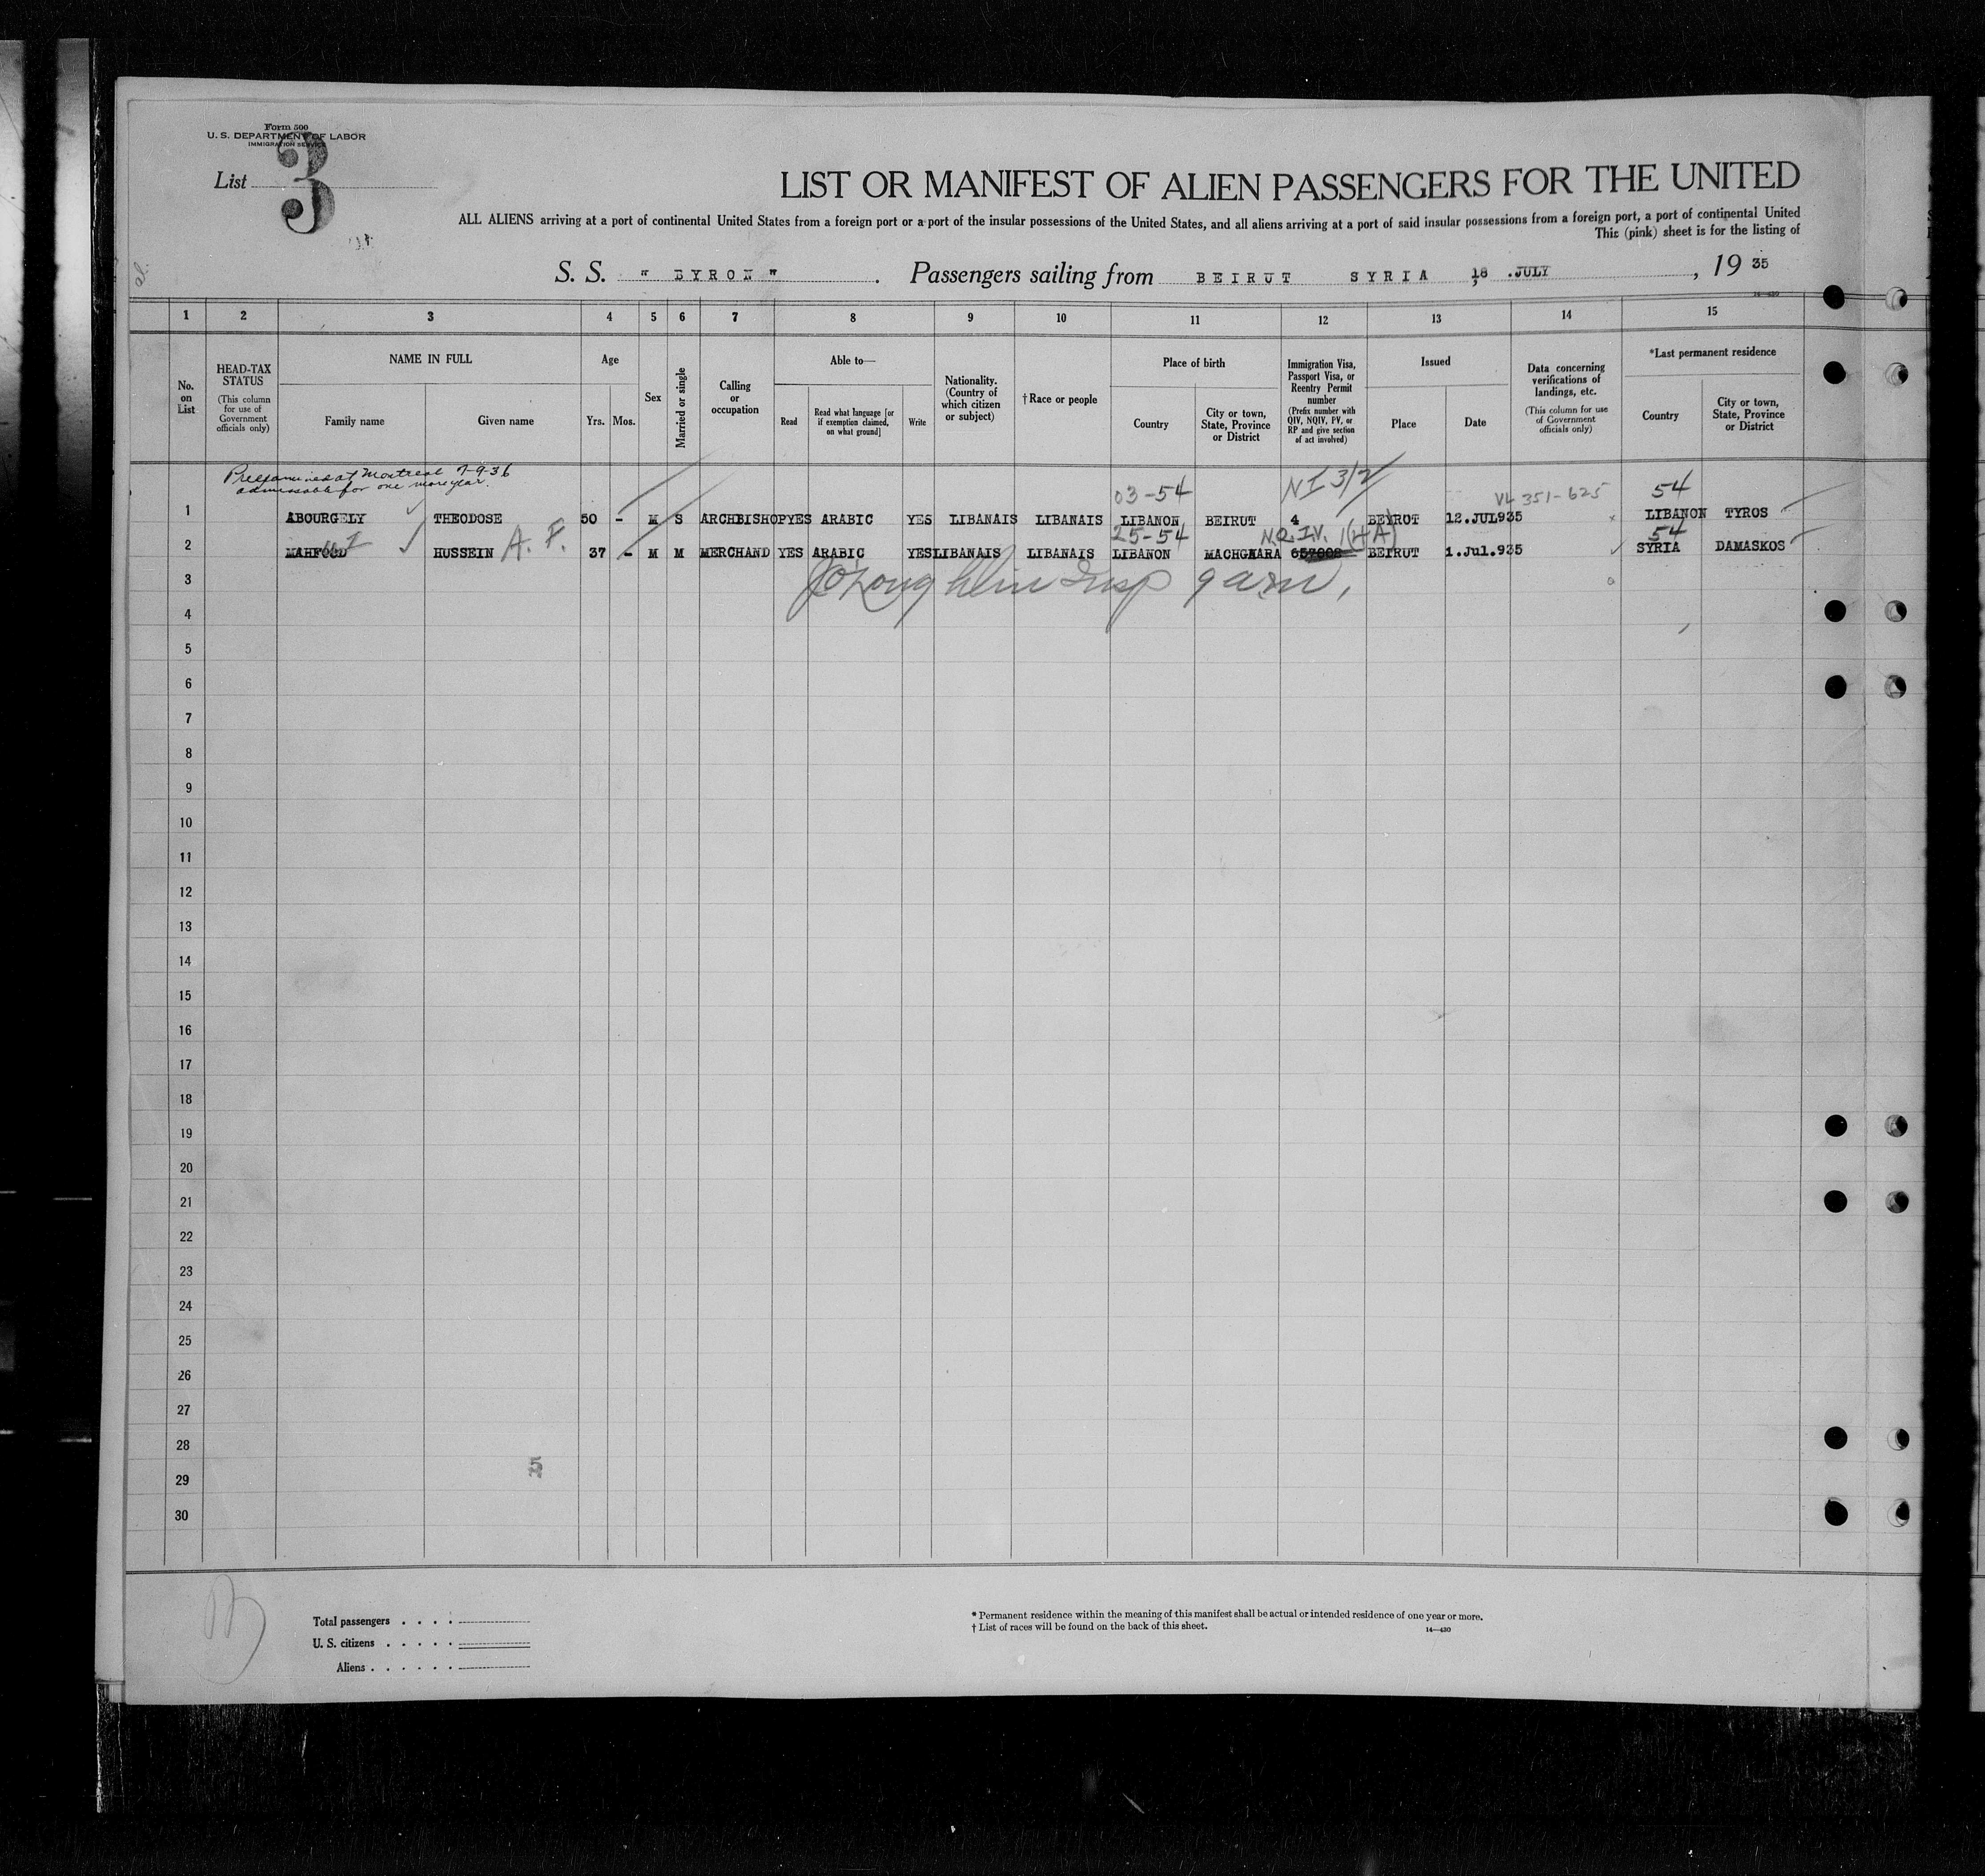 Form 500
U. S. DEPARTMENT OF LABOR
IMMIGRATION SERVICE
List 3
LIST OR MANIFEST OF ALIEN PASSENGERS FOR THE UNITED
ALL ALIENS arriving at a port of continental United States from a foreign port or a port of the insular possessions of the United States, and all aliens arriving at a port of said insular possessions from a foreign port, a port of continental United
This (pink) sheet is for the listing of
S. S. " BYRON " . Passengers sailing from BEIRUT SYRIA , 18 .JULY , 19 35
14—430
1 2 3 4 5 6 7 8 9 10 11 12 13 14 15
No. on List
HEAD-TAX STATUS (This column for use of Government officials only)
NAME IN FULL
Family name
Given name
Age
Yrs. Mos.
Sex
Married or single
Calling or occupation
Able to—
Read
Read what language [or if exemption claimed, on what ground]
Write
Nationality. (Country of which citizen or subject)
†Race or people
Place of birth
Country
City or town, State, Province or District
Immigration Visa, Passport Visa, or Reentry Permit number (Prefix number with QIV, NQIV, PV, or RP and give section of act involved)
Issued
Place
Date
Data concerning verifications of landings, etc. (This column for use of Government officials only)
*Last permanent residence
Country
City or town, State, Province or District
Preexamined at Montreal 7-9-36
admissable for one more year.
03-54 NI 3/2 VL 351-625 54
1 ABOURGELY THEODOSE 50 - M S ARCHBISHOP YES ARABIC YES LIBANAIS LIBANAIS LIBANON BEIRUT 4 BEYROT 12.JUL935 LIBANON TYROS
25-54 N.Q.I.V. 1(4A) 54
2 MAHFOUD HUSSEIN A. F. 37 - M M MERCHAND YES ARABIC YES LIBANAIS LIBANAIS LIBANON MACHGAARA BEIRUT 1.Jul.935 SYRIA DAMASKOS
Insp
3
4
5
6
7
8
9
10
11
12
13
14
15
16
17
18
19
20
21
22
23
24
25
26
27
28
29
30
Total passengers . . . .
U. S. citizens . . . . .
Aliens . . . . . .
* Permanent residence within the meaning of this manifest shall be actual or intended residence of one year or more.
† List of races will be found on the back of this sheet.
14—430